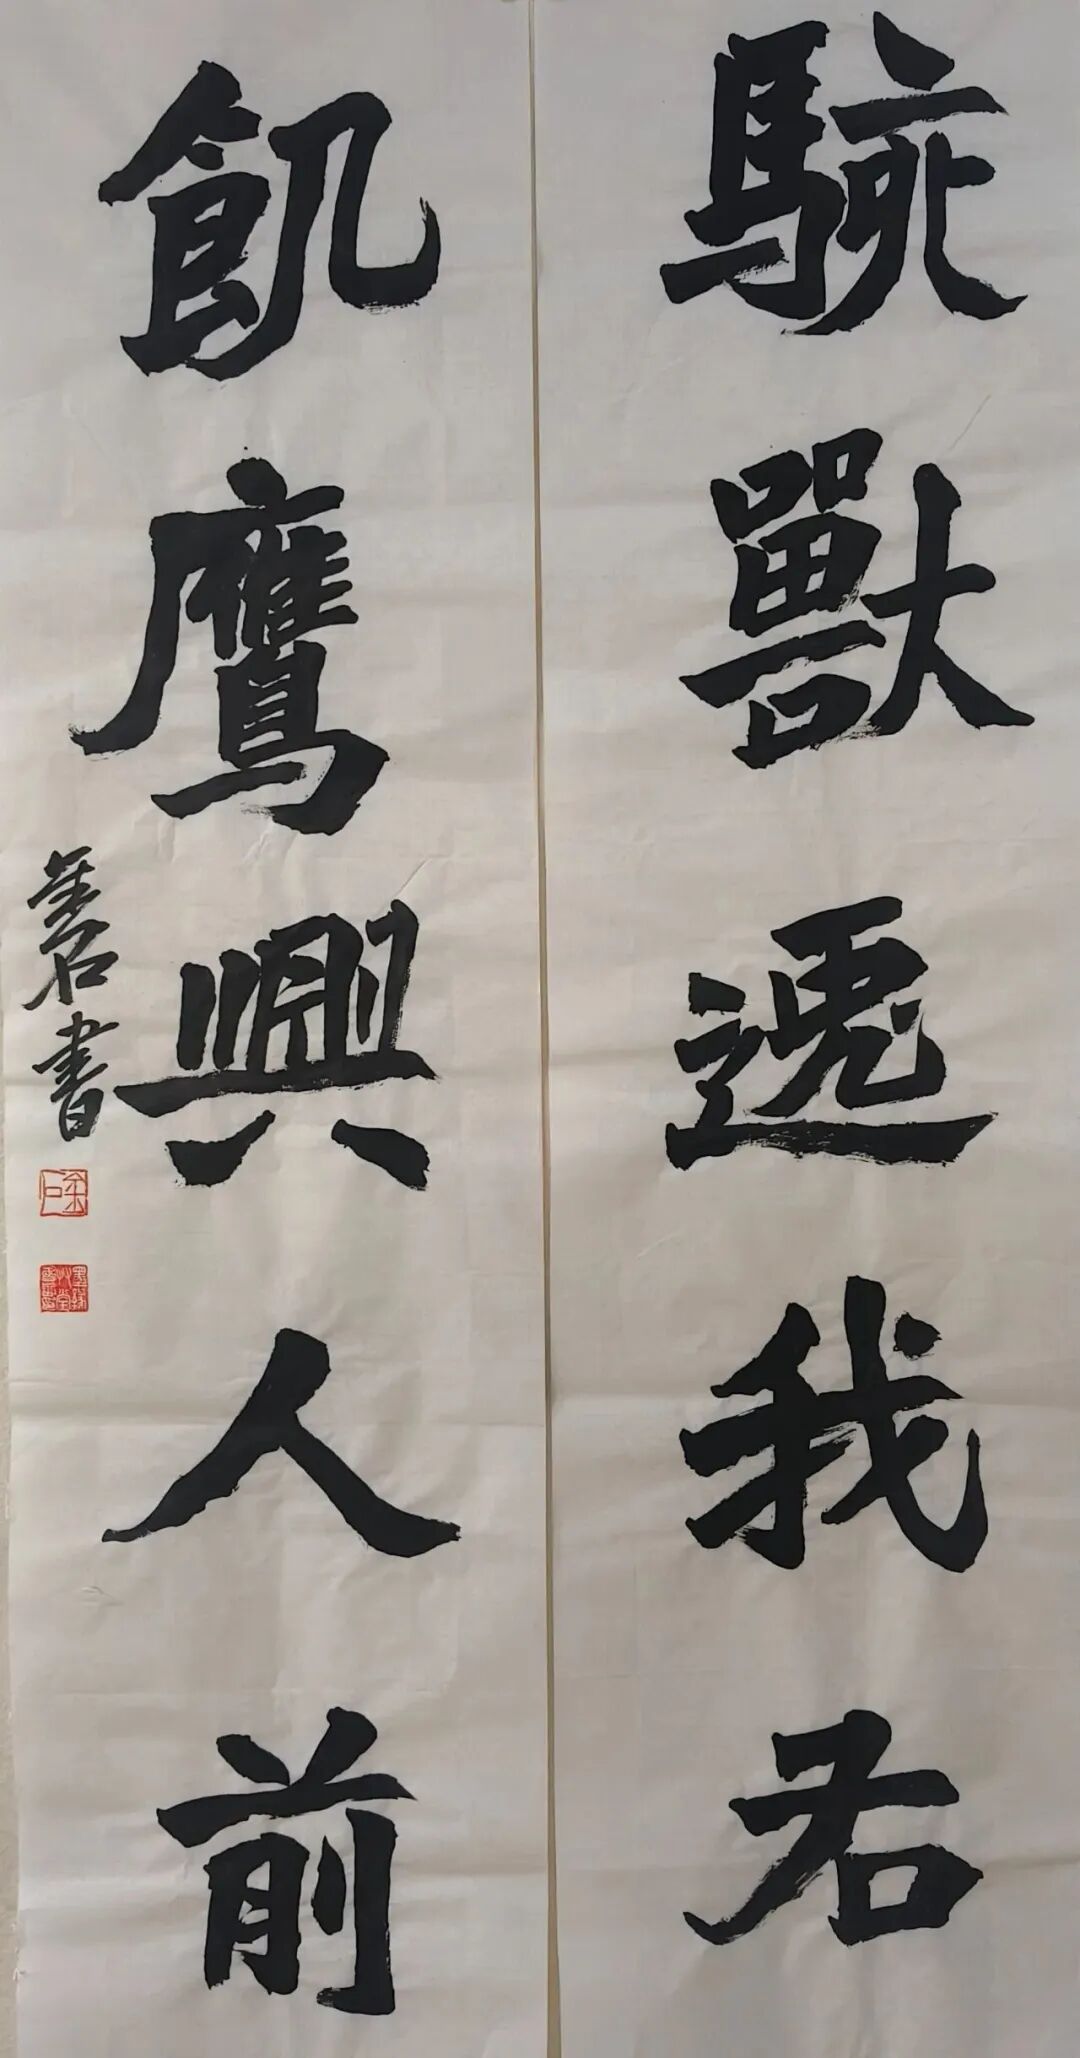 駭獸遞我君
飢鷹興人前
書